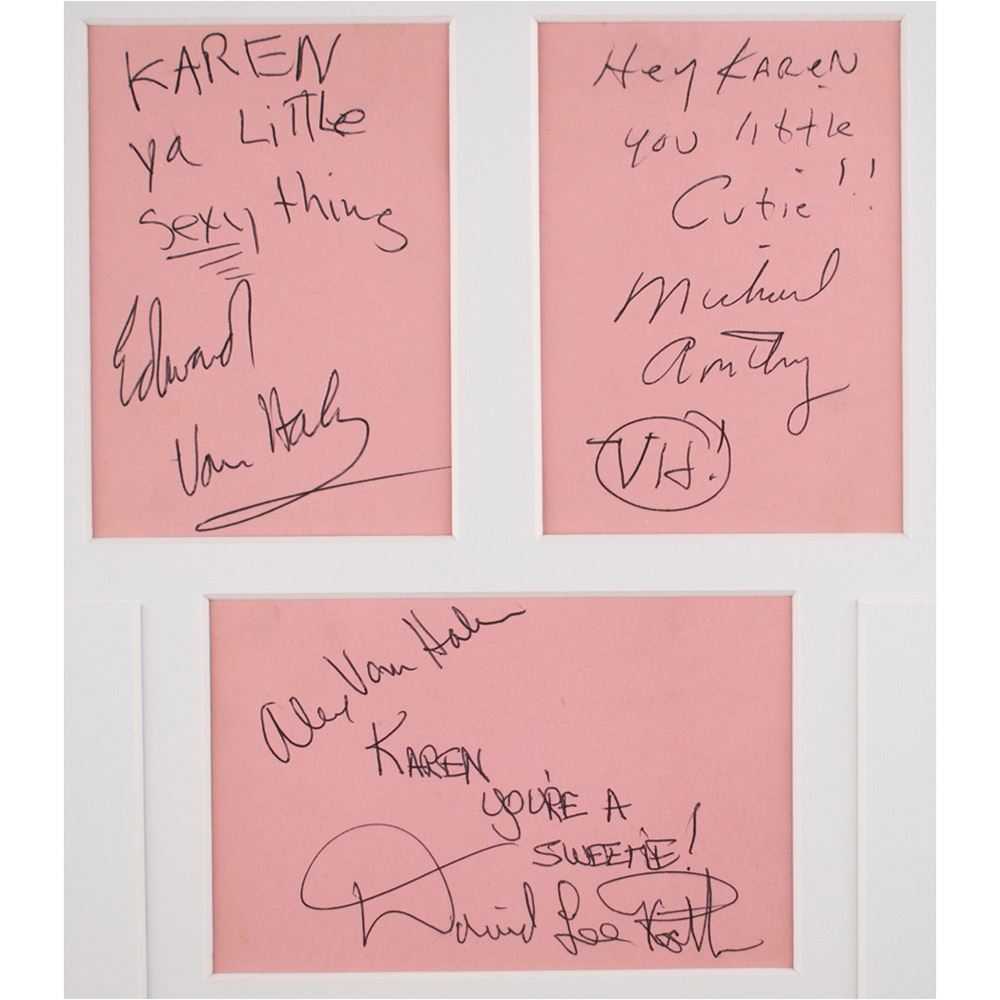 KAREN
ya LiTTLe
sexy thing
Edward
Van Halen
Hey KAREN
you little
Cutie!!
Michael
Anthony
VH!
Alex Van Halen
KAREN
YOU'RE A
SWEETIE!
David Lee Roth